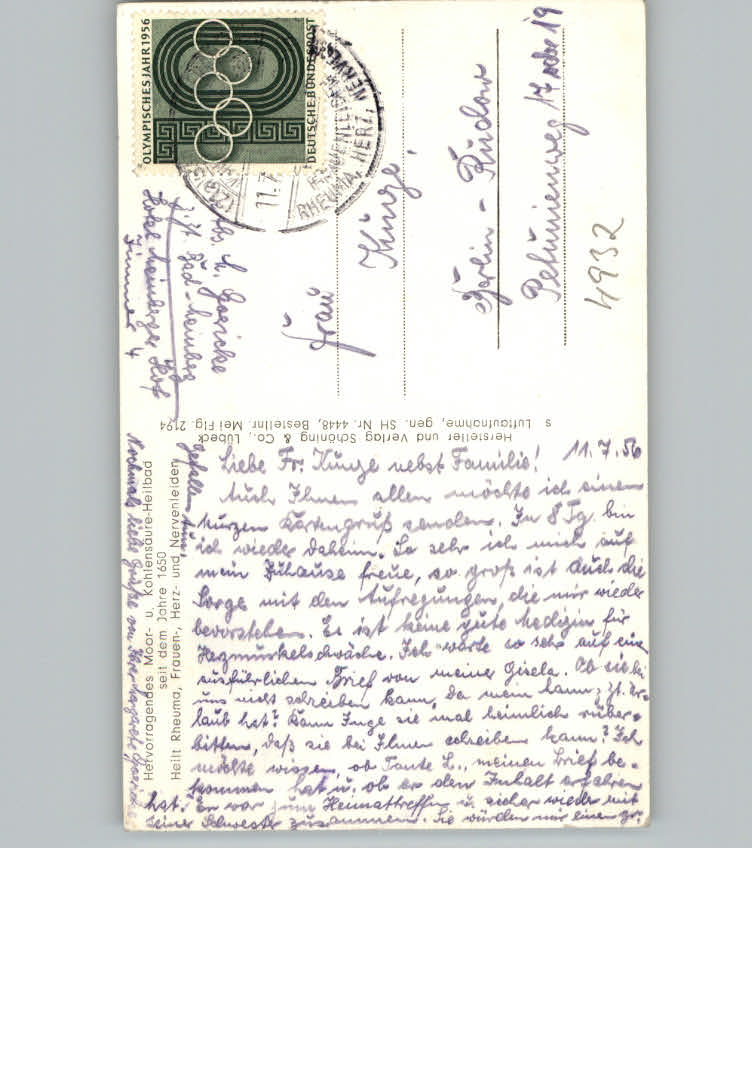 OLYMPISCHES JAHR 1956
DEUTSCHE BUNDESPOST
11.7
FRAUENLEIDEN
RHEUMA, HERZ, NERVEN
Abs. M. Goericke
z. Zt. Bad-Meinberg
Hotel Meinberger Hof
Zimmer 4
Frau
Kunze.
Berlin-Rudow
Petunienweg 17 oder 19
4932
Hersteller und Verlag Schöning & Co., Lübeck
s Luftaufnahme, gen. SH Nr. 4448, Bestellnr. Mei Flg. 2194
Hervorragendes Moor- u. Kohlensäure-Heilbad
seit dem Jahre 1650
Heilt Rheuma, Frauen-, Herz- und Nervenleiden
11.7.56
Liebe Fr. Kunze nebst Familie!
Auch Ihnen allen möchte ich einen
kurzen Kartengruß senden. In 8 Tg. bin
ich wieder daheim. So sehr ich mich auf
mein Zuhause freue, so groß ist auch die
Sorge mit den Aufregungen, die mir wieder
bevorstehen. Es ist keine gute Medizin für
Herzmuskelschwäche. Ich warte so sehr auf ein
ausführlichen Brief von meiner Gisela. Ob sie bei
uns nicht schreiben kann, da mein Mann z. Zt. Ur-
laub hat? Kann Inge sie mal heimlich rüber-
bitten, daß sie bei Ihnen schreiben kann? Ich
möchte wissen, ob Tante L., meinen Brief be-
kommen hat u. ob er den Inhalt erfahren
hat. Er war zum Heimattreffen u. sicher wieder mit
seiner Schwester zusammen. Sie würden mir einen gr.
Gefallen tun.
Nochmals liebe Grüße von Ihrer Margarete Goericke